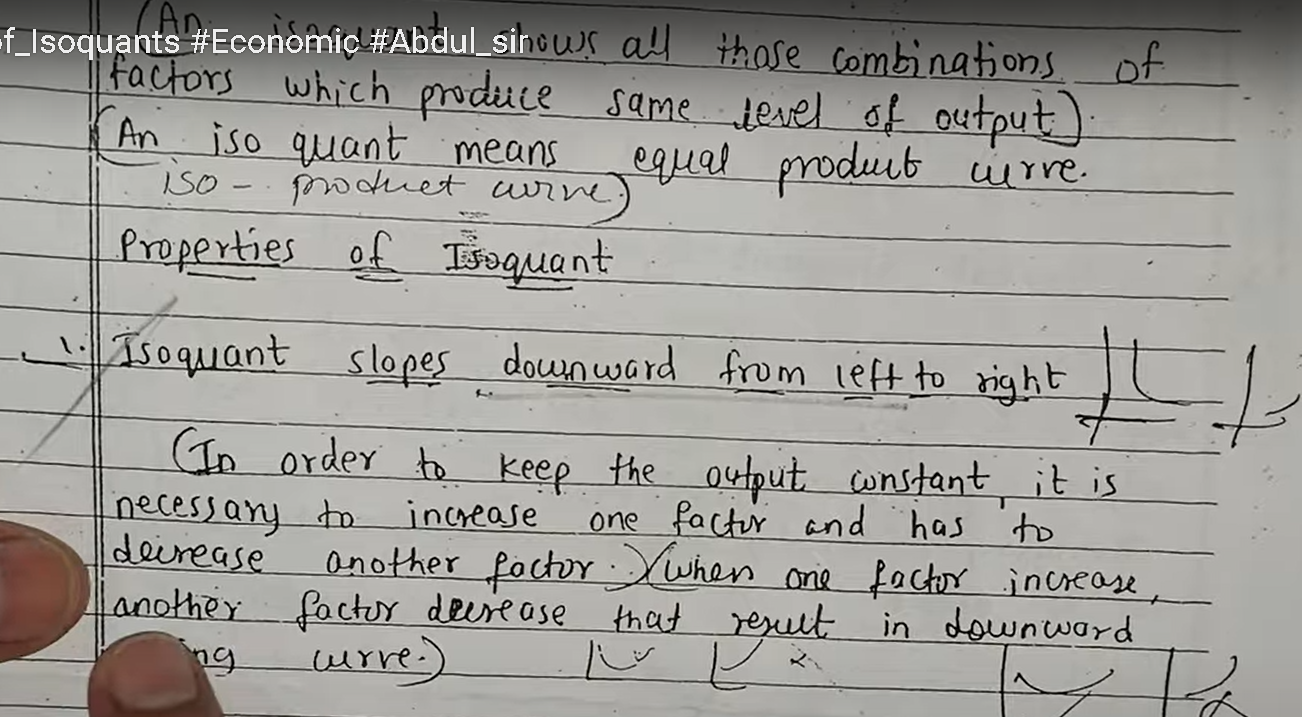 of_Isoquants #Economic #Abdul_sir
(An isoquant shows all those combinations of
factors which produce same level of output).
(An iso quant means equal product curve.
iso - product curve)
Properties of Isoquant
1. Isoquant slopes downward from left to right
(In order to keep the output constant, it is
necessary to increase one factor and has to
decrease another factor.) (when one factor increase,
another factor decrease that result in downward
ng curve.)